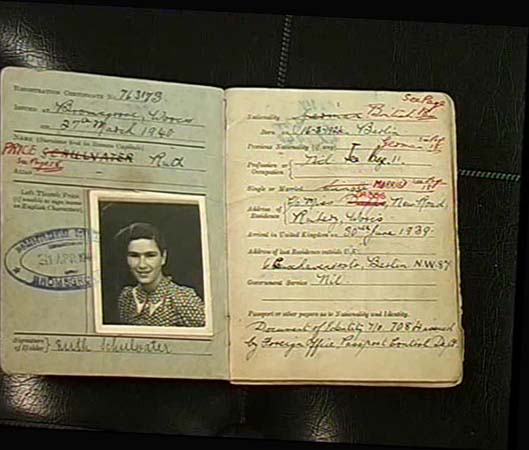 REGISTRATION CERTIFICATE No. 763173
ISSUED AT Bromsgrove Worcs
ON 27th March 1940
NAME (Surname first in Roman Capitals)
PRICE SCHULVATER Ruth
See Page 18
ALIAS
Left Thumb Print
(if unable to sign name
in English Characters).
BROMSGROVE
Signature
of Holder } Ruth Schulvater
See Page
Nationality German British
Born on 16-3-1922 in Berlin
Previous Nationality (if any) German
Profession or
Occupation } Nil
Single or Married Single MARRIED
Address of
Residence } New Road,
Worcs
Arrived in United Kingdom on 30th June 1939
Address of last Residence outside U.K.
Berlin N.W.87
Government Service Nil
Passport or other papers as to Nationality and Identity.
Document of Identity No. 708 issued
by Foreign Office Passport Control Dept.